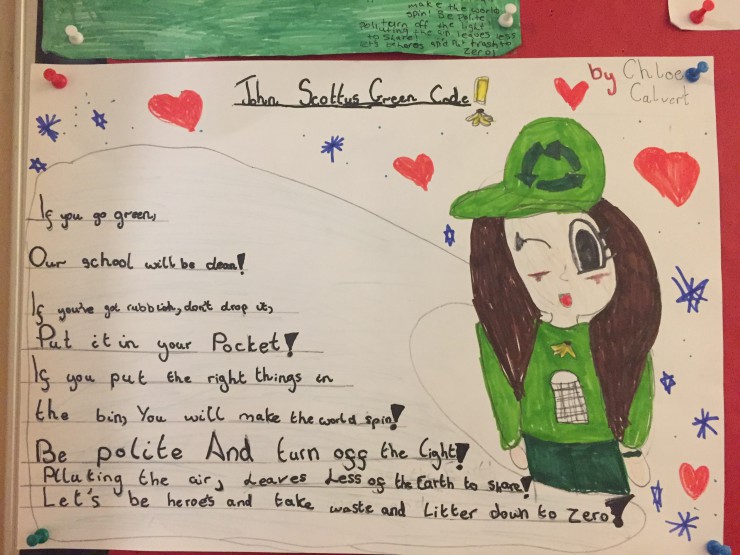 make the world
spin! Be polite
turn off the light
the air leaves less
to Share!
and Put trash to
Zero!
John Scottus Green Code!
by Chloe
Calvert
If you go green,
Our school will be clean!
If you've got rubbish, don't drop it,
Put it in your Pocket!
If you put the right things in
the bin, You will make the world spin!
Be polite And turn off the light!
Plluting the air, Leaves Less of the Earth to share!
Let's be heroes and take waste and Litter down to Zero!